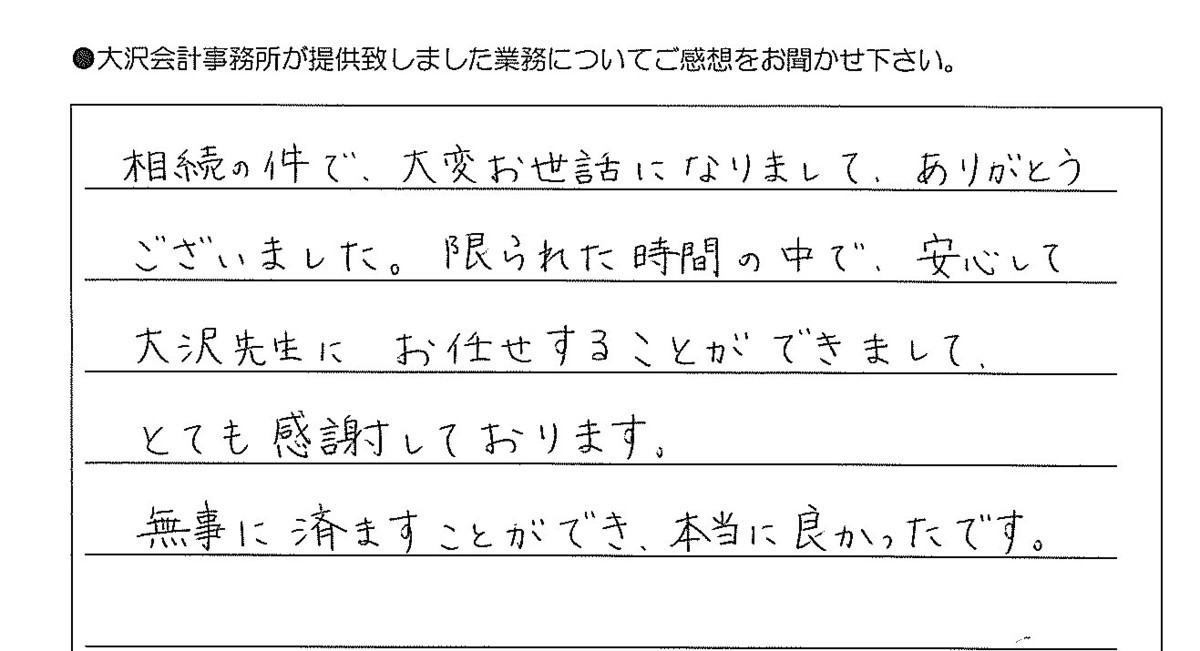 ●大沢会計事務所が提供致しました業務についてご感想をお聞かせ下さい。
相続の件で、大変お世話になりまして、ありがとう
ございました。限られた時間の中で、安心して
大沢先生に お任せすることができまして、
とても感謝しております。
無事に済ますことができ、本当に良かったです。